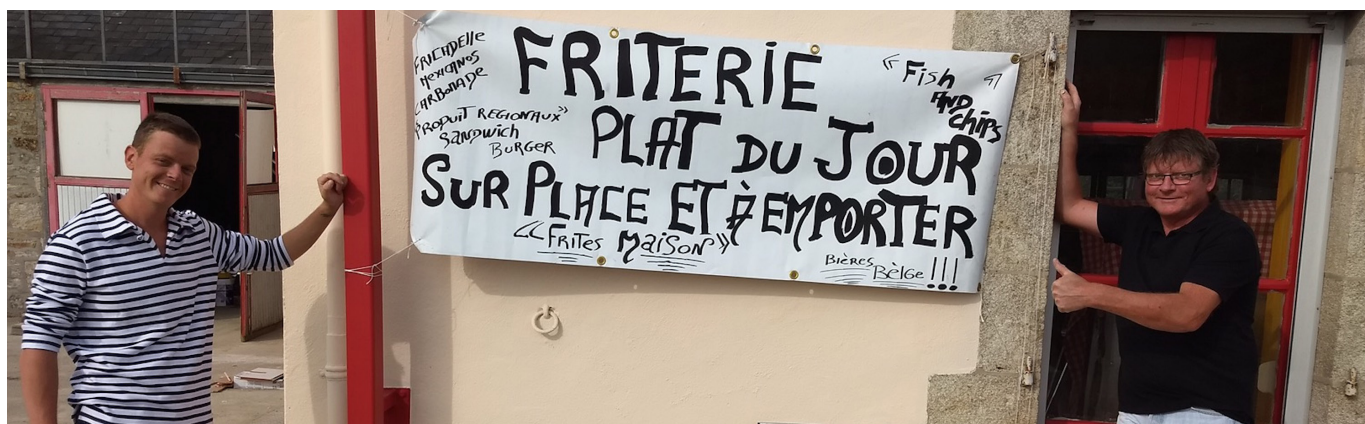 FRICADElle
MEXICANOS
CARBONADE
"PRODUIT REGIONAUX"
SANDWICH
BURGER
FRITERIE
PLAT DU JOUR
SUR PLACE ET À EMPORTER
"FRITES MAISON"
"Fish
AND
Chips"
BIÈRES BÈLGE !!!